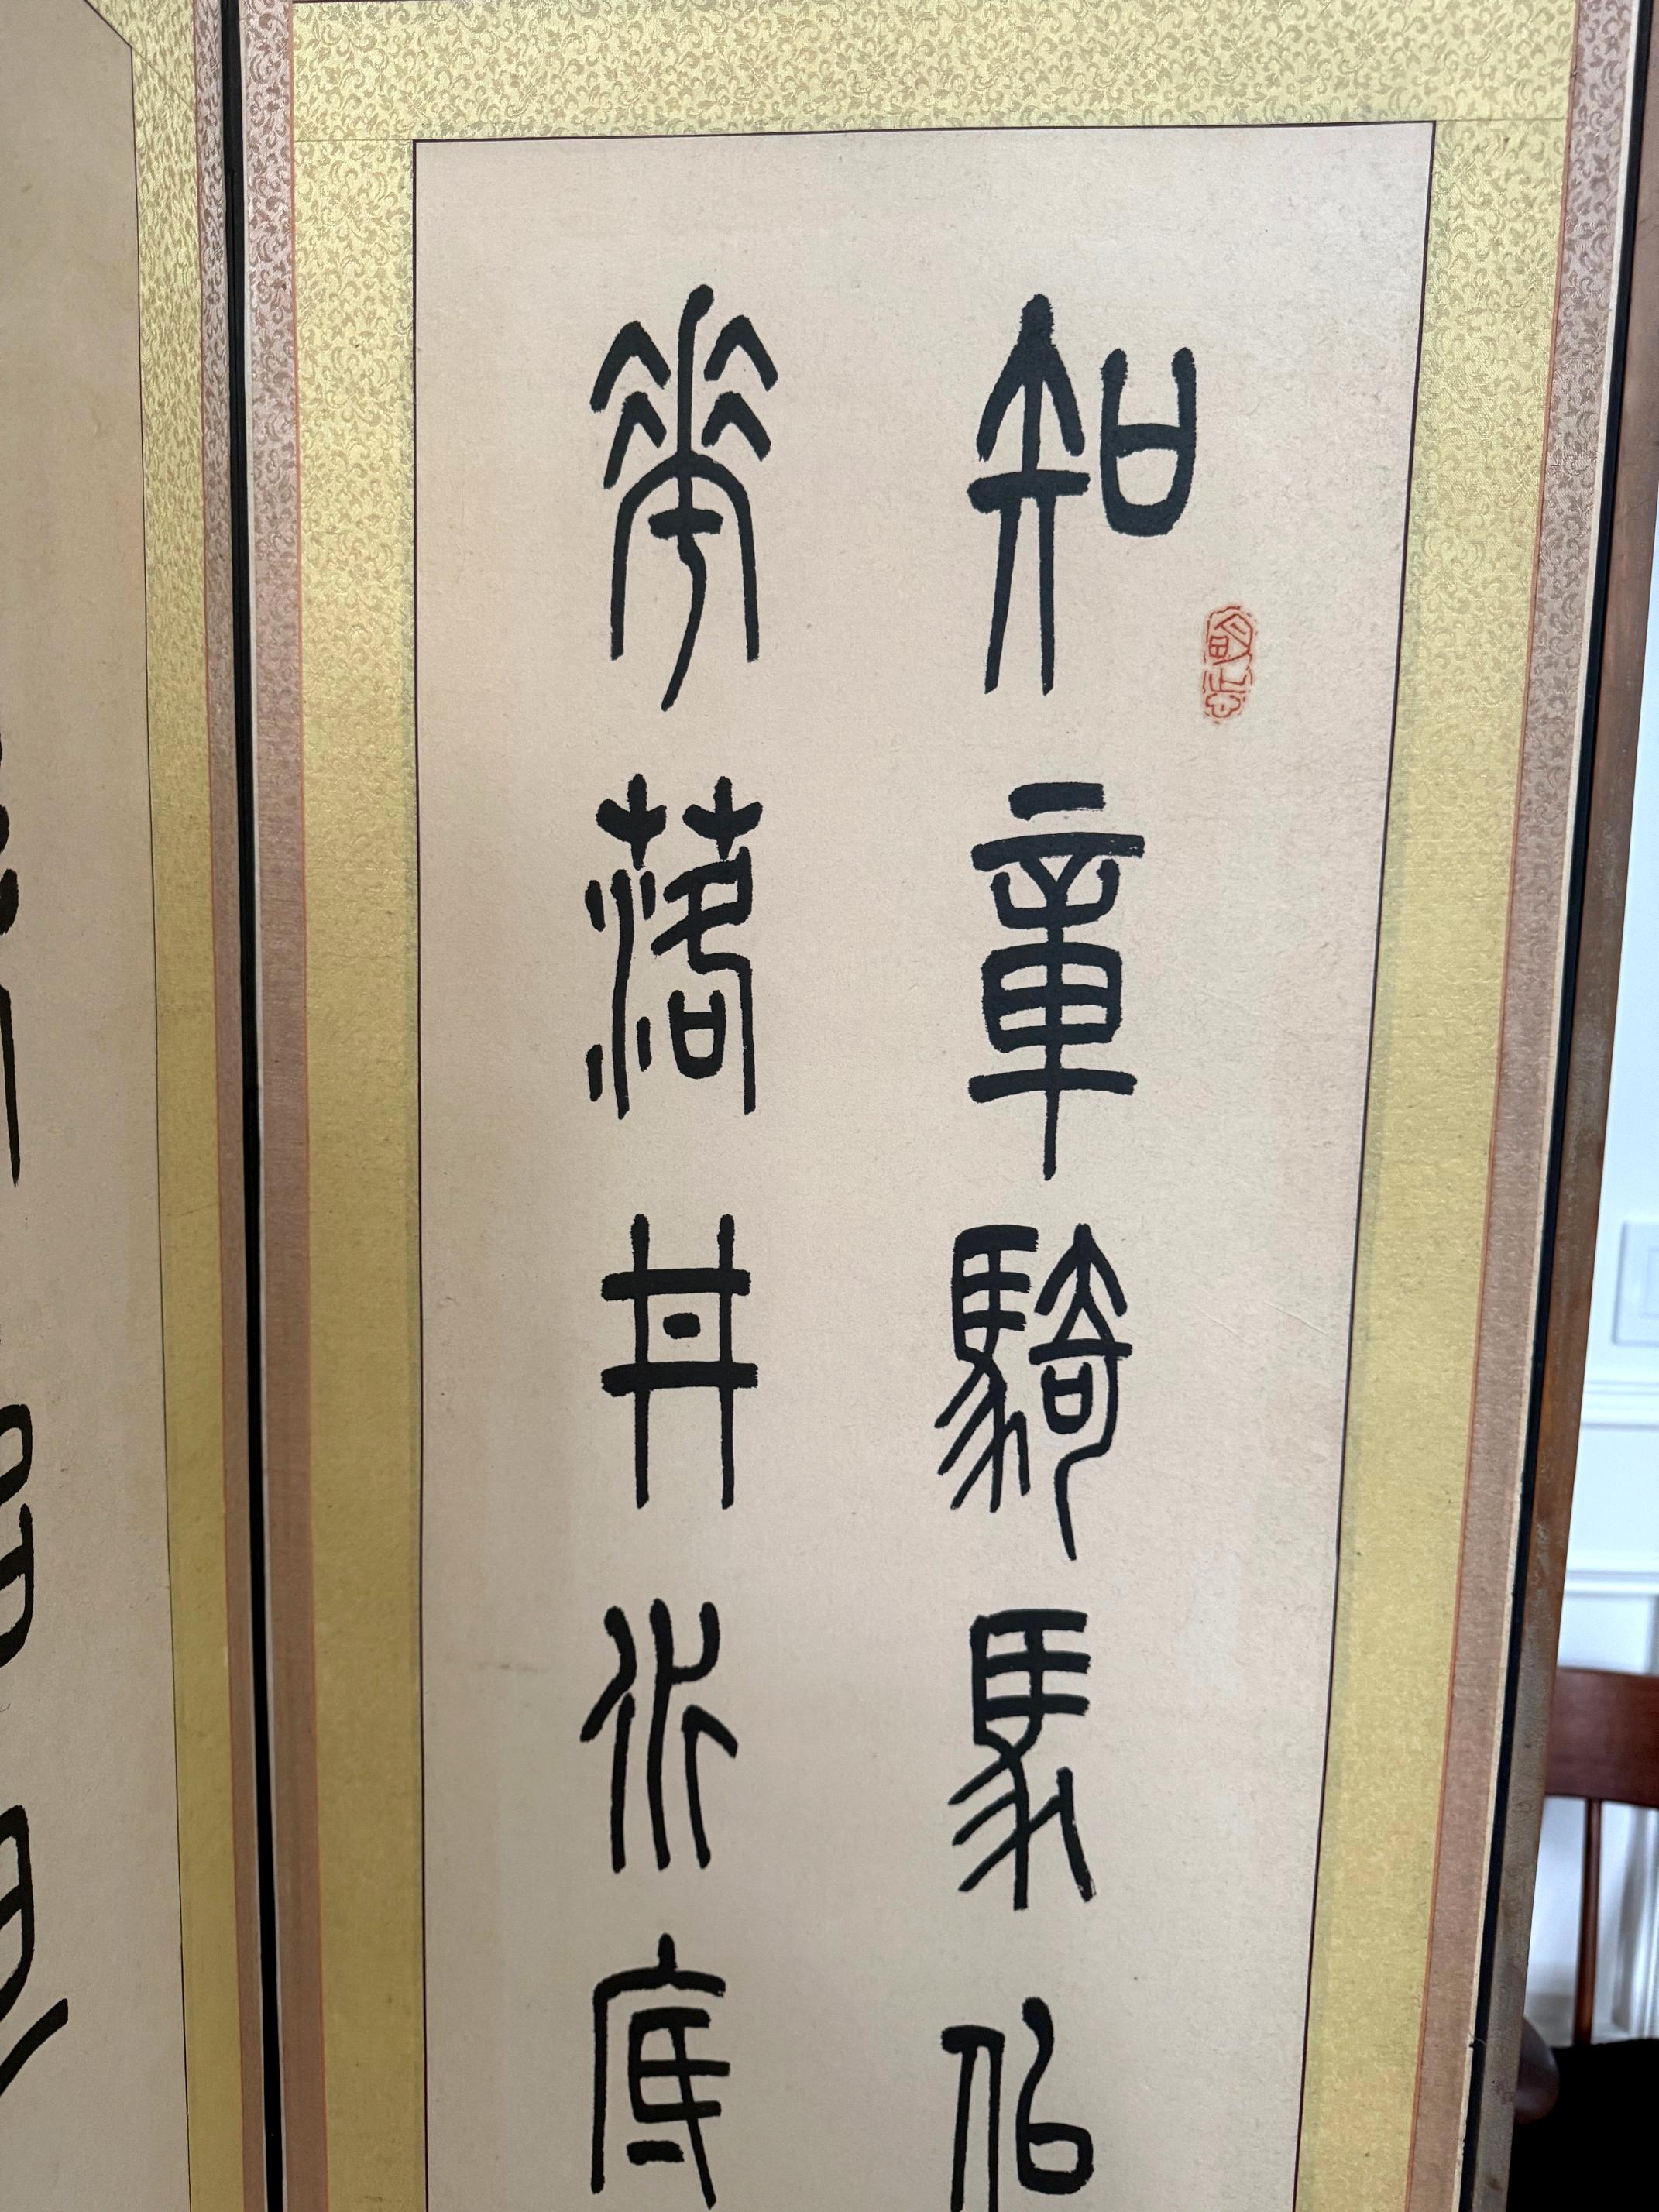 知章騎馬似
花落井水底